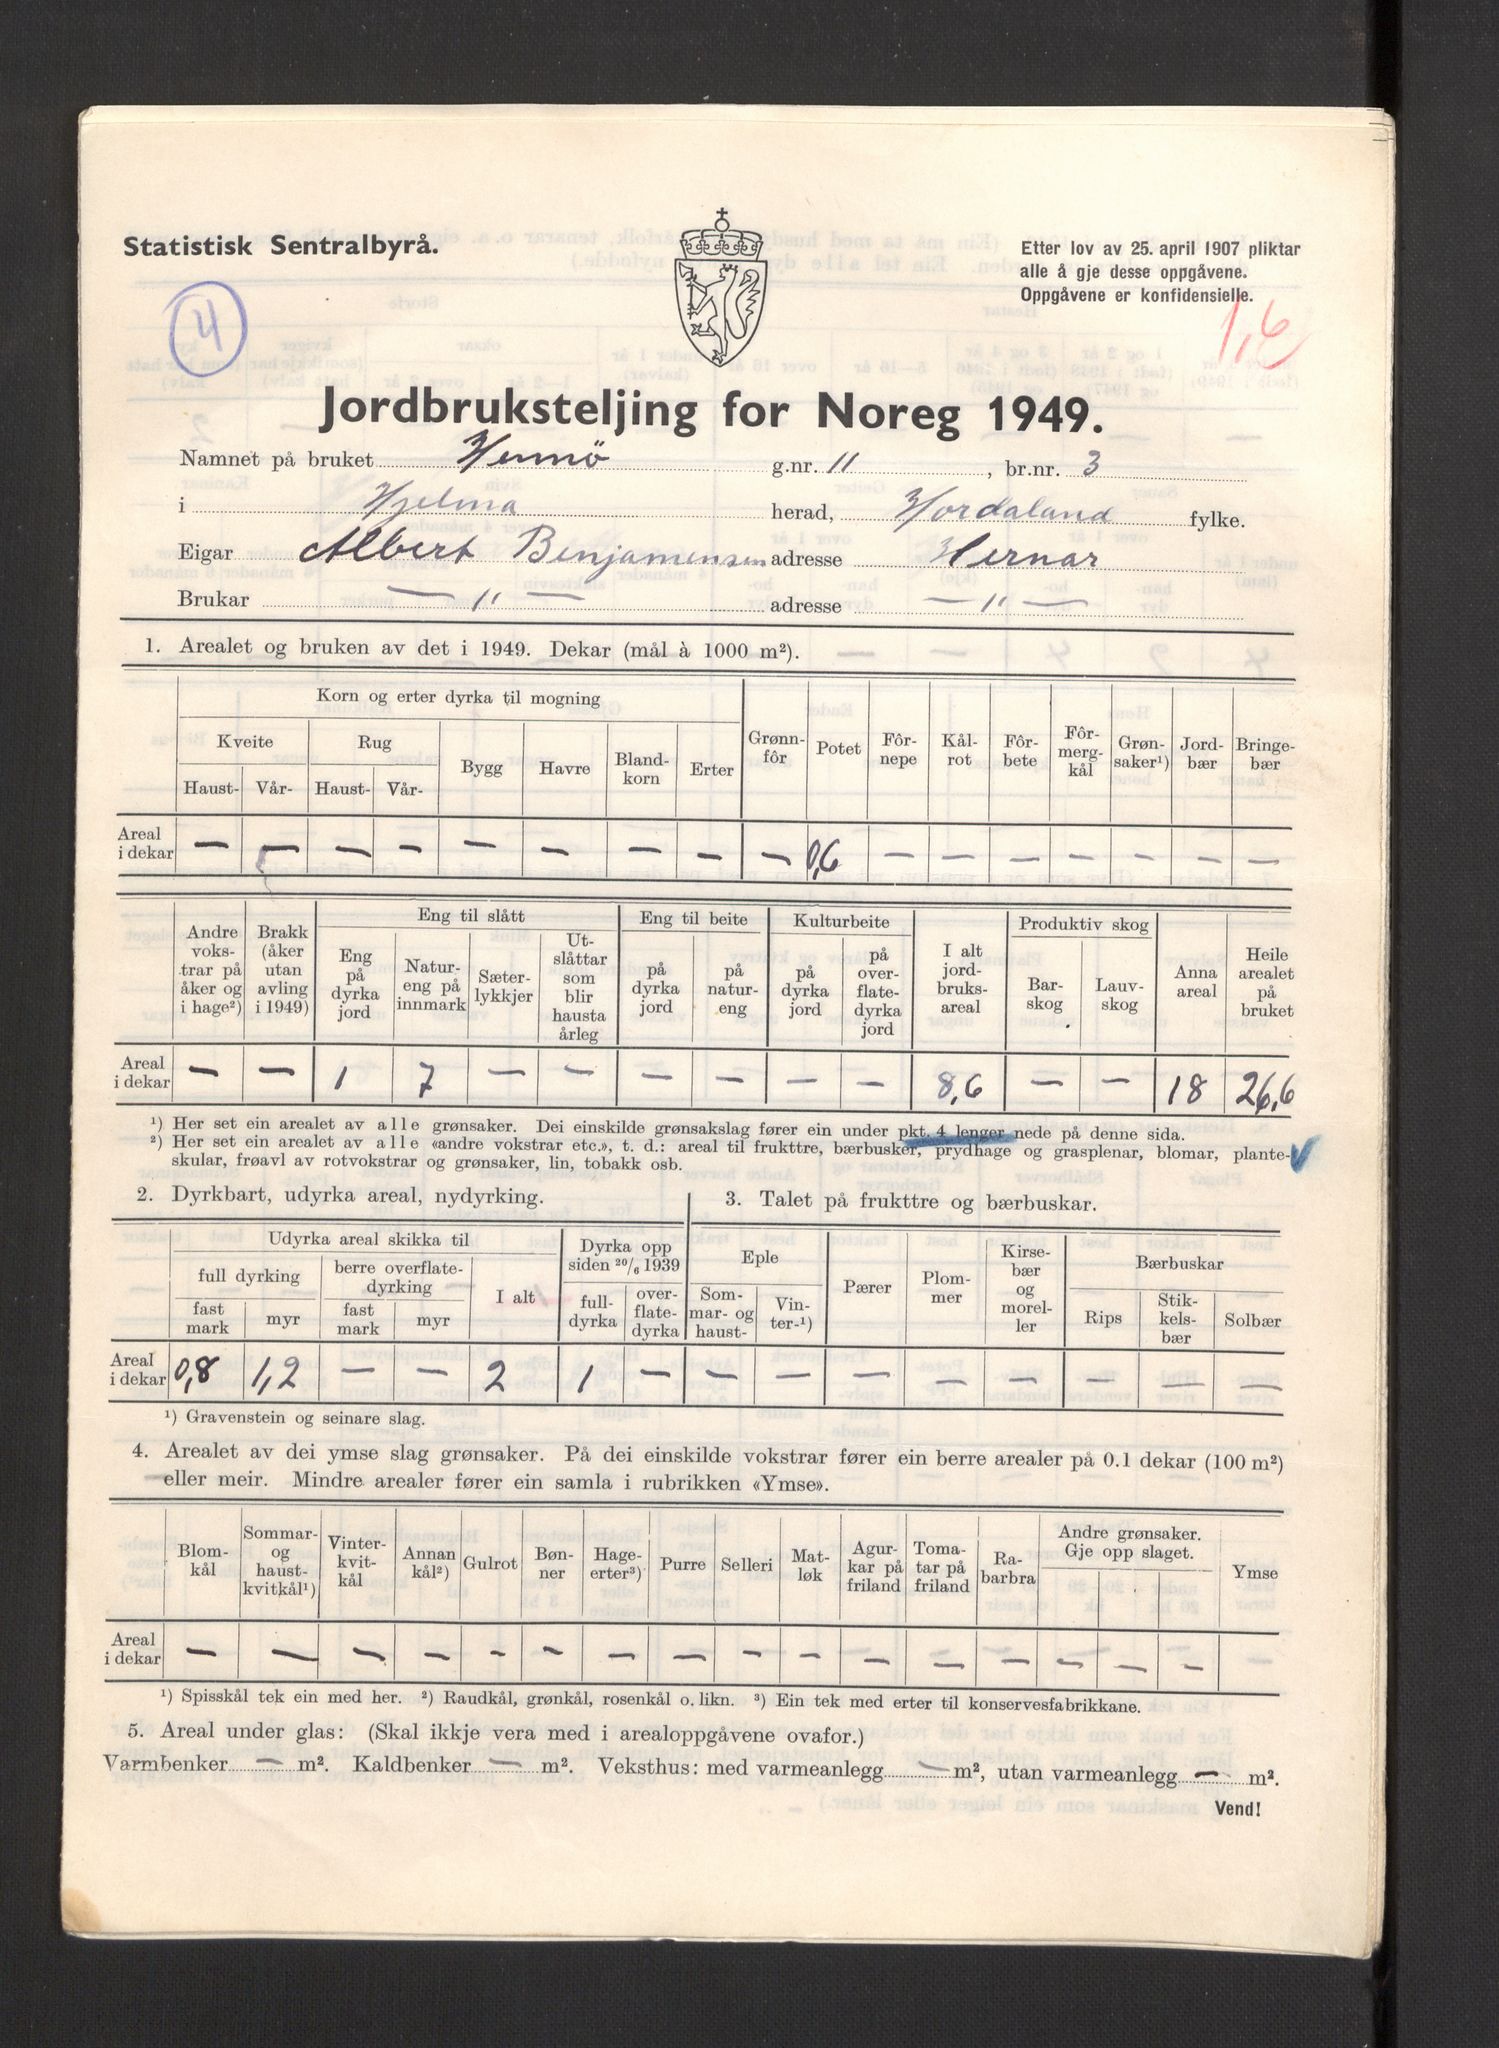 Statistisk Sentralbyrå.
Etter lov av 25. april 1907 pliktar
alle å gje desse oppgåvene.
Oppgåvene er konfidensielle.
4
1,6
Jordbruksteljing for Noreg 1949.
Namnet på bruket Hernö g.nr. 11, br.nr. 3
i Hjelma herad, Hordaland fylke.
Eigar Albert Benjamensen adresse Hernar
Brukar — " — adresse — " —
1. Arealet og bruken av det i 1949. Dekar (mål à 1000 m²).
Korn og erter dyrka til mogning
Kveite Rug Bygg Havre Bland-korn Erter Grønn-fôr Potet Fôr-nepe Kål-rot Fôr-bete Fôr-mergkål Grøn-saker¹) Jord-bær Bringe-bær
Haust- Vår- Haust- Vår-
Areal i dekar — — — — — — — — — 0,6 — — — — — — —
Andre vokstrar på åker og i hage²) Brakk (åker utan avling i 1949) Eng til slått Eng til beite Kulturbeite I alt jordbruksareal Produktiv skog Anna areal Heile arealet på bruket
Eng på dyrka jord Natureng på innmark Sæterlykkjer Utslåttar som blir hausta årleg på dyrka jord på natureng på dyrka jord på overflatedyrka jord Barskog Lauvskog
Areal i dekar — — 1 7 — — — — — — 8,6 — — 18 26,6
¹) Her set ein arealet av alle grønsaker. Dei einskilde grønsakslag fører ein under pkt. 4 lenger nede på denne sida.
²) Her set ein arealet av alle «andre vokstrar etc.», t. d.: areal til frukttre, bærbusker, prydhage og grasplenar, blomar, plante-
skular, frøavl av rotvokstrar og grønsaker, lin, tobakk osb.
2. Dyrkbart, udyrka areal, nydyrking.
Udyrka areal skikka til Dyrka opp siden 20/6 1939
full dyrking berre overflatedyrking I alt fulldyrka overflatedyrka
fast mark myr fast mark myr
Areal i dekar 0,8 1,2 — — 2 1 —
3. Talet på frukttre og bærbuskar.
Eple Pærer Plommer Kirsebær og moreller Bærbuskar
Sommar- og haust- Vinter-¹) Rips Stikkelsbær Solbær
— — — — — — — —
¹) Gravenstein og seinare slag.
4. Arealet av dei ymse slag grønsaker. På dei einskilde vokstrar fører ein berre arealer på 0.1 dekar (100 m²)
eller meir. Mindre arealer fører ein samla i rubrikken «Ymse».
Blomkål Sommar- og haustkvitkål¹) Vinterkvitkål Annan kål²) Gulrot Bønner Hageerter³) Purre Selleri Matløk Agurkar på friland Tomatar på friland Rabarbra Andre grønsaker. Gje opp slaget. Ymse
Areal i dekar — — — — — — — — — — — — — — — — —
¹) Spisskål tek ein med her. ²) Raudkål, grønkål, rosenkål o. likn. ³) Ein tek med erter til konservesfabrikkane.
5. Areal under glas: (Skal ikkje vera med i arealoppgåvene ovafor.)
Varmbenker — m². Kaldbenker — m². Veksthus: med varmeanlegg — m², utan varmeanlegg — m².
Vend!